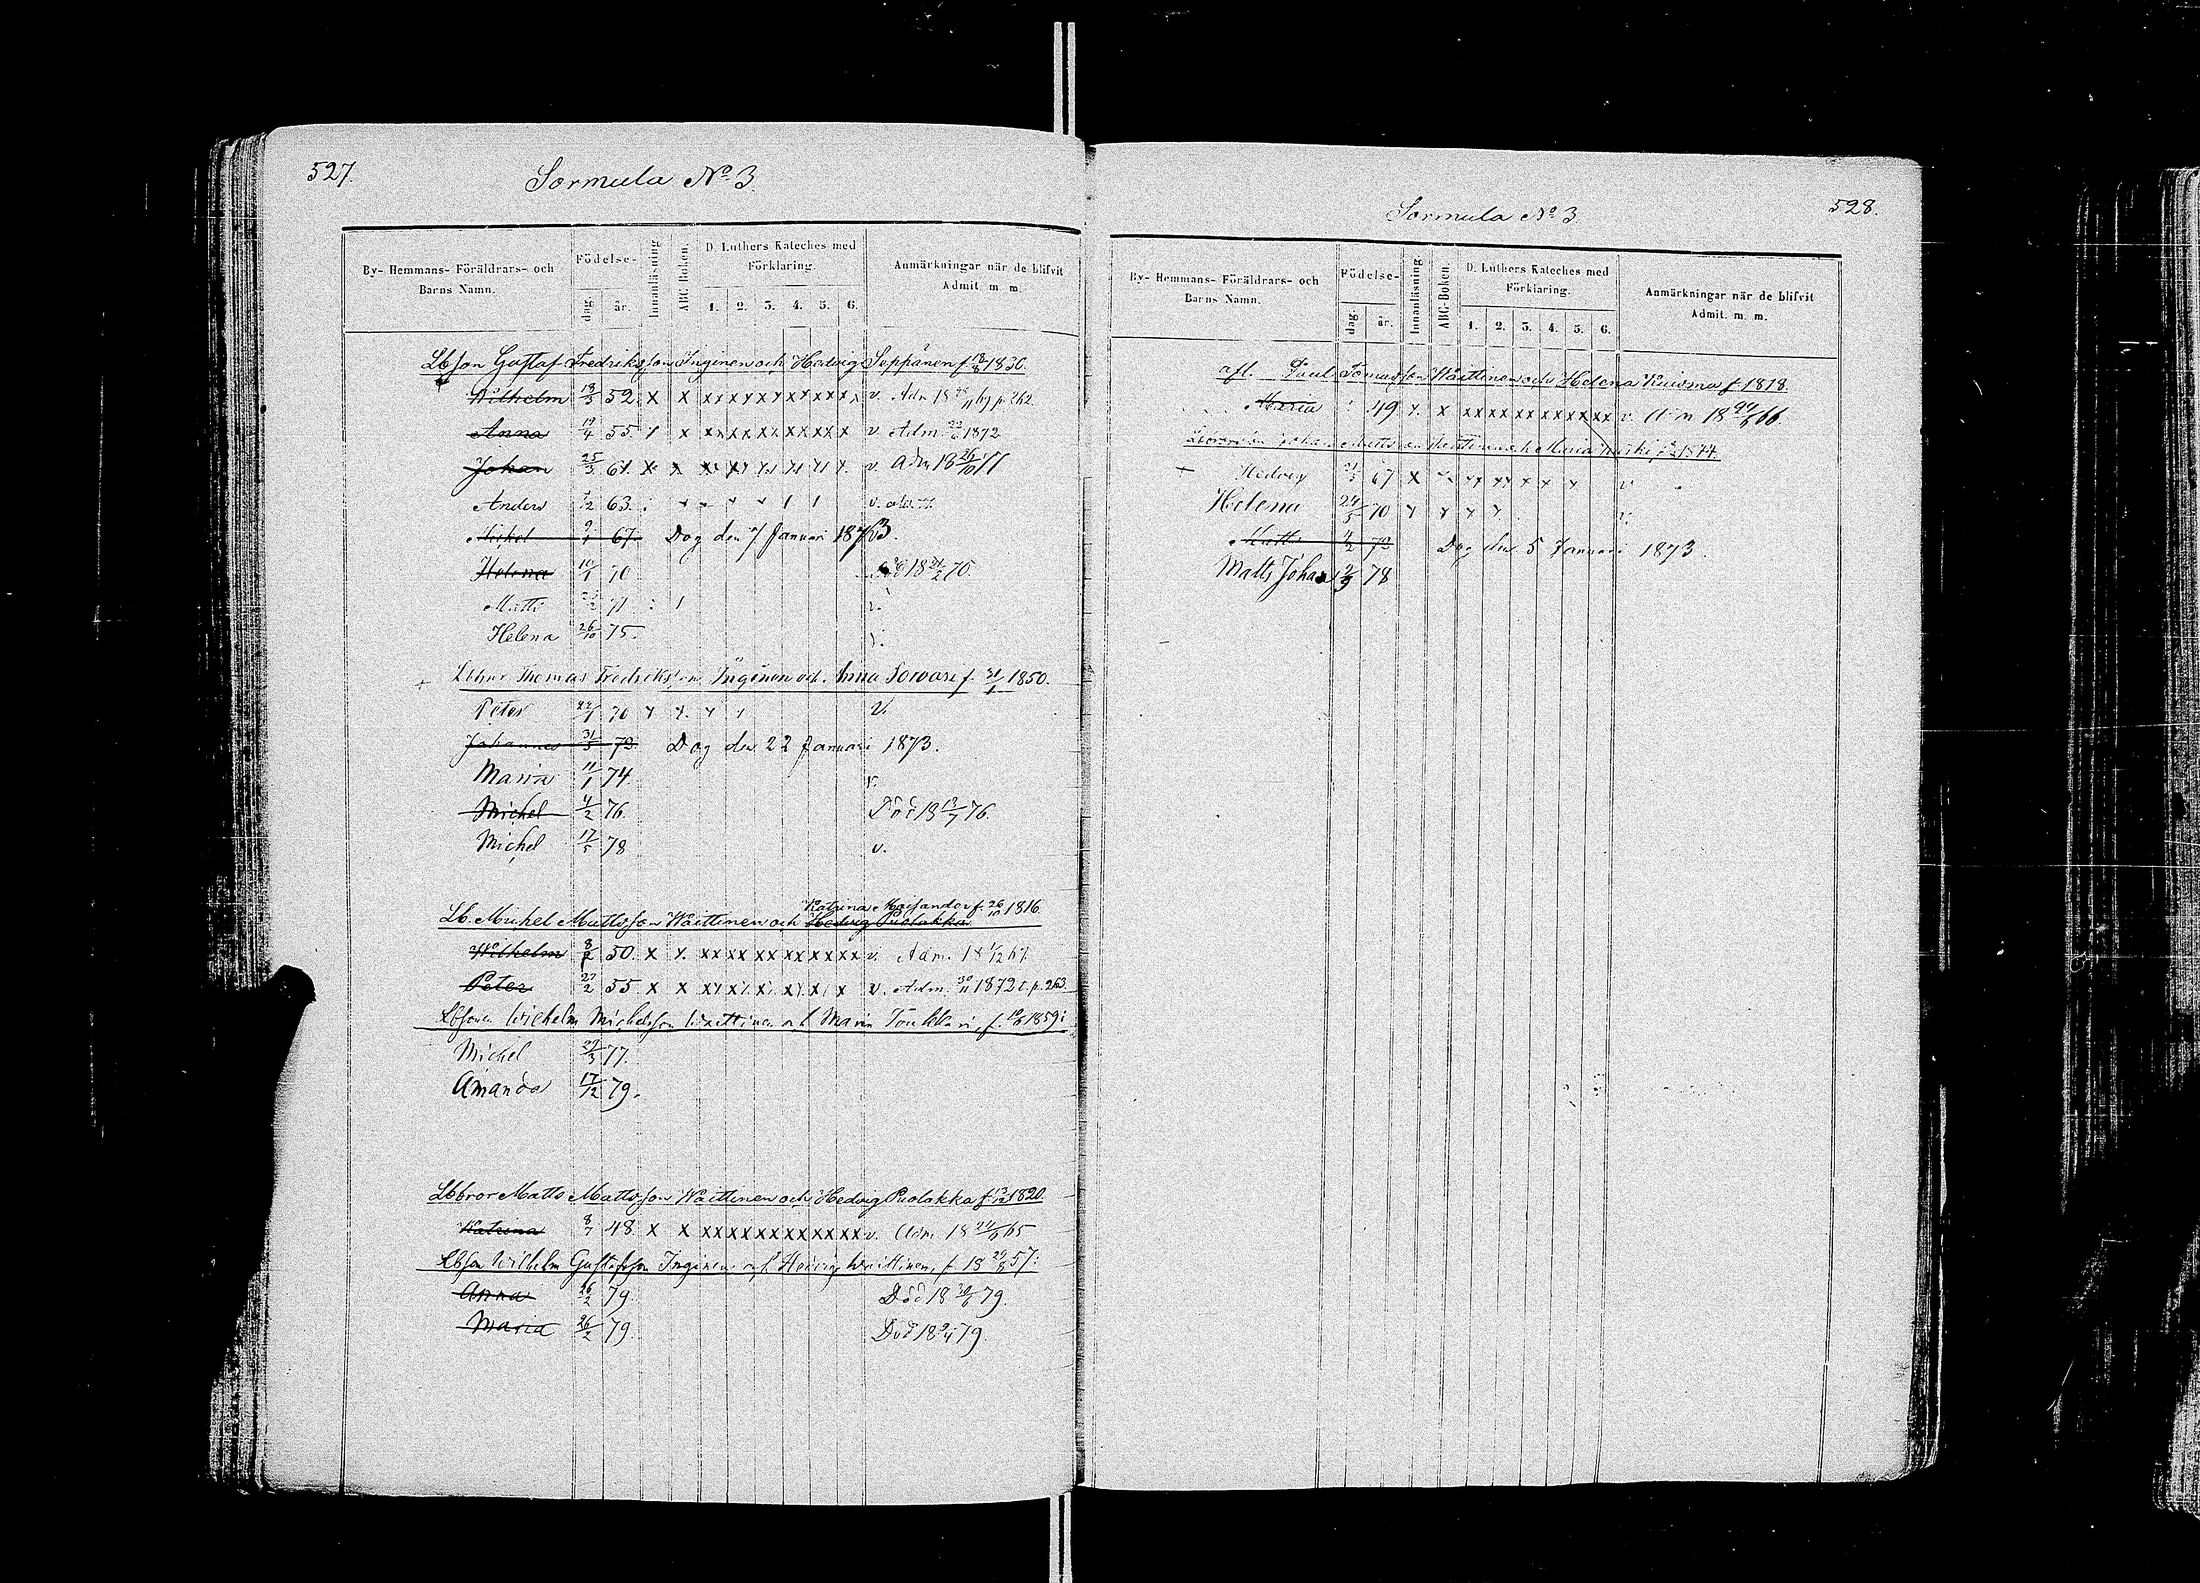 527.
Sormula No 3.
By- Hemmans- Föräldrars- och Barns Namn.
Födelse-
dag. år.
Innanläsning
ABC-Boken.
D. Luthers Kateches med Förklaring.
1. 2. 3. 4. 5. 6.
Anmärkningar när de blifvit Admit. m. m.
Lbson Gustaf Fredriksson Inginen och Hedvig Seppänen f. 1830.
Wilhelm 13/5 52. x x xx xx xx xx xx xx v. Adm 18 67 p. 262
Anna 19/4 55. x xx xx xx xx xx x v. Adm. 1872
Johan 25/3 61. x x v. Adm 18 26/10 77
Anders 63. v.
Michel 9/1 67. Dog den 7 Januari 1873.
Helena 10/1 70 Död 18 21/2 70.
Matts 71 v.
Helena 26/10 75.
+ Lbbror Thomas Fredriksson Inginen och Anna Sowari f. 31/1 1850.
Peter 22/1 70 v.
Johannes 31/5 72. Dog den 22 Januari 1873.
Maria 11/1 74 v.
Michel 4/2 76. Död 18 13/7 76.
Michel 17/5 78 v.
Katrina f. 26/10 1816.
Lb. Michel Mattsson Waittinen och Hedvig Puolakka
Wilhelm 50. x x xx xx xx xx xx xx v. Adm. 18 1/12 67
Peter 27/2 55 x x v. Adm. 30/11 1872 t. p. 263.
Lbsonen Wilhelm Michelsson Waittinen och Maria Toukkari, f. 1859:
Michel 29/3 77.
Amanda 17/12 79.
Lbbror Matts Mattsson Waittinen och Hedvig Puolakka f. 13/12 1820.
Katrina 8/7 48. x x xx xx xx xx xx xx v. Adm. 18 65
Lbson Wilhelm Gustafsson Inginen och Hedvig Waittinen, f. 18 57:
Anna 26/2 79. Död 18 30/6 79.
Maria 26/2 79. Död 18 9/4 79.
528.
Sormula No 3
By- Hemmans- Föräldrars- och Barns Namn.
Födelse-
dag. år.
Innanläsning.
ABC-Boken.
D. Luthers Kateches med Förklaring.
1. 2. 3. 4. 5. 6.
Anmärkningar när de blifvit Admit. m. m.
afl. Paul Tomasson Waittinen och Helena Kuisma f. 1818.
Maria 49 x x xx xx xx xx xx xx v. Adm 18 66.
Johan Mattsson Waittinen och Maria 1844.
+ Hedvig 67 x v
Helena 24/5 70 v.
Matts 72 Dog den 5 Januari 1873.
Matts Johan 78